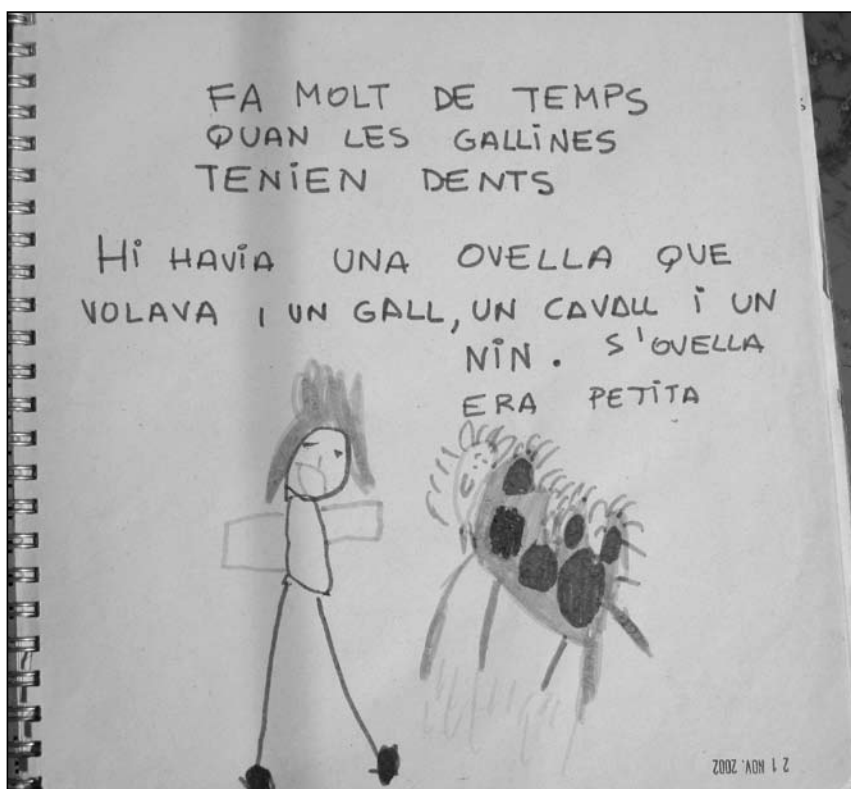 FA MOLT DE TEMPS
QUAN LES GALLINES
TENIEN DENTS
HI HAVIA UNA OVELLA QUE
VOLAVA I UN GALL, UN CAVALL I UN
NIN. S'OVELLA
ERA PETITA
21 NOV. 2002